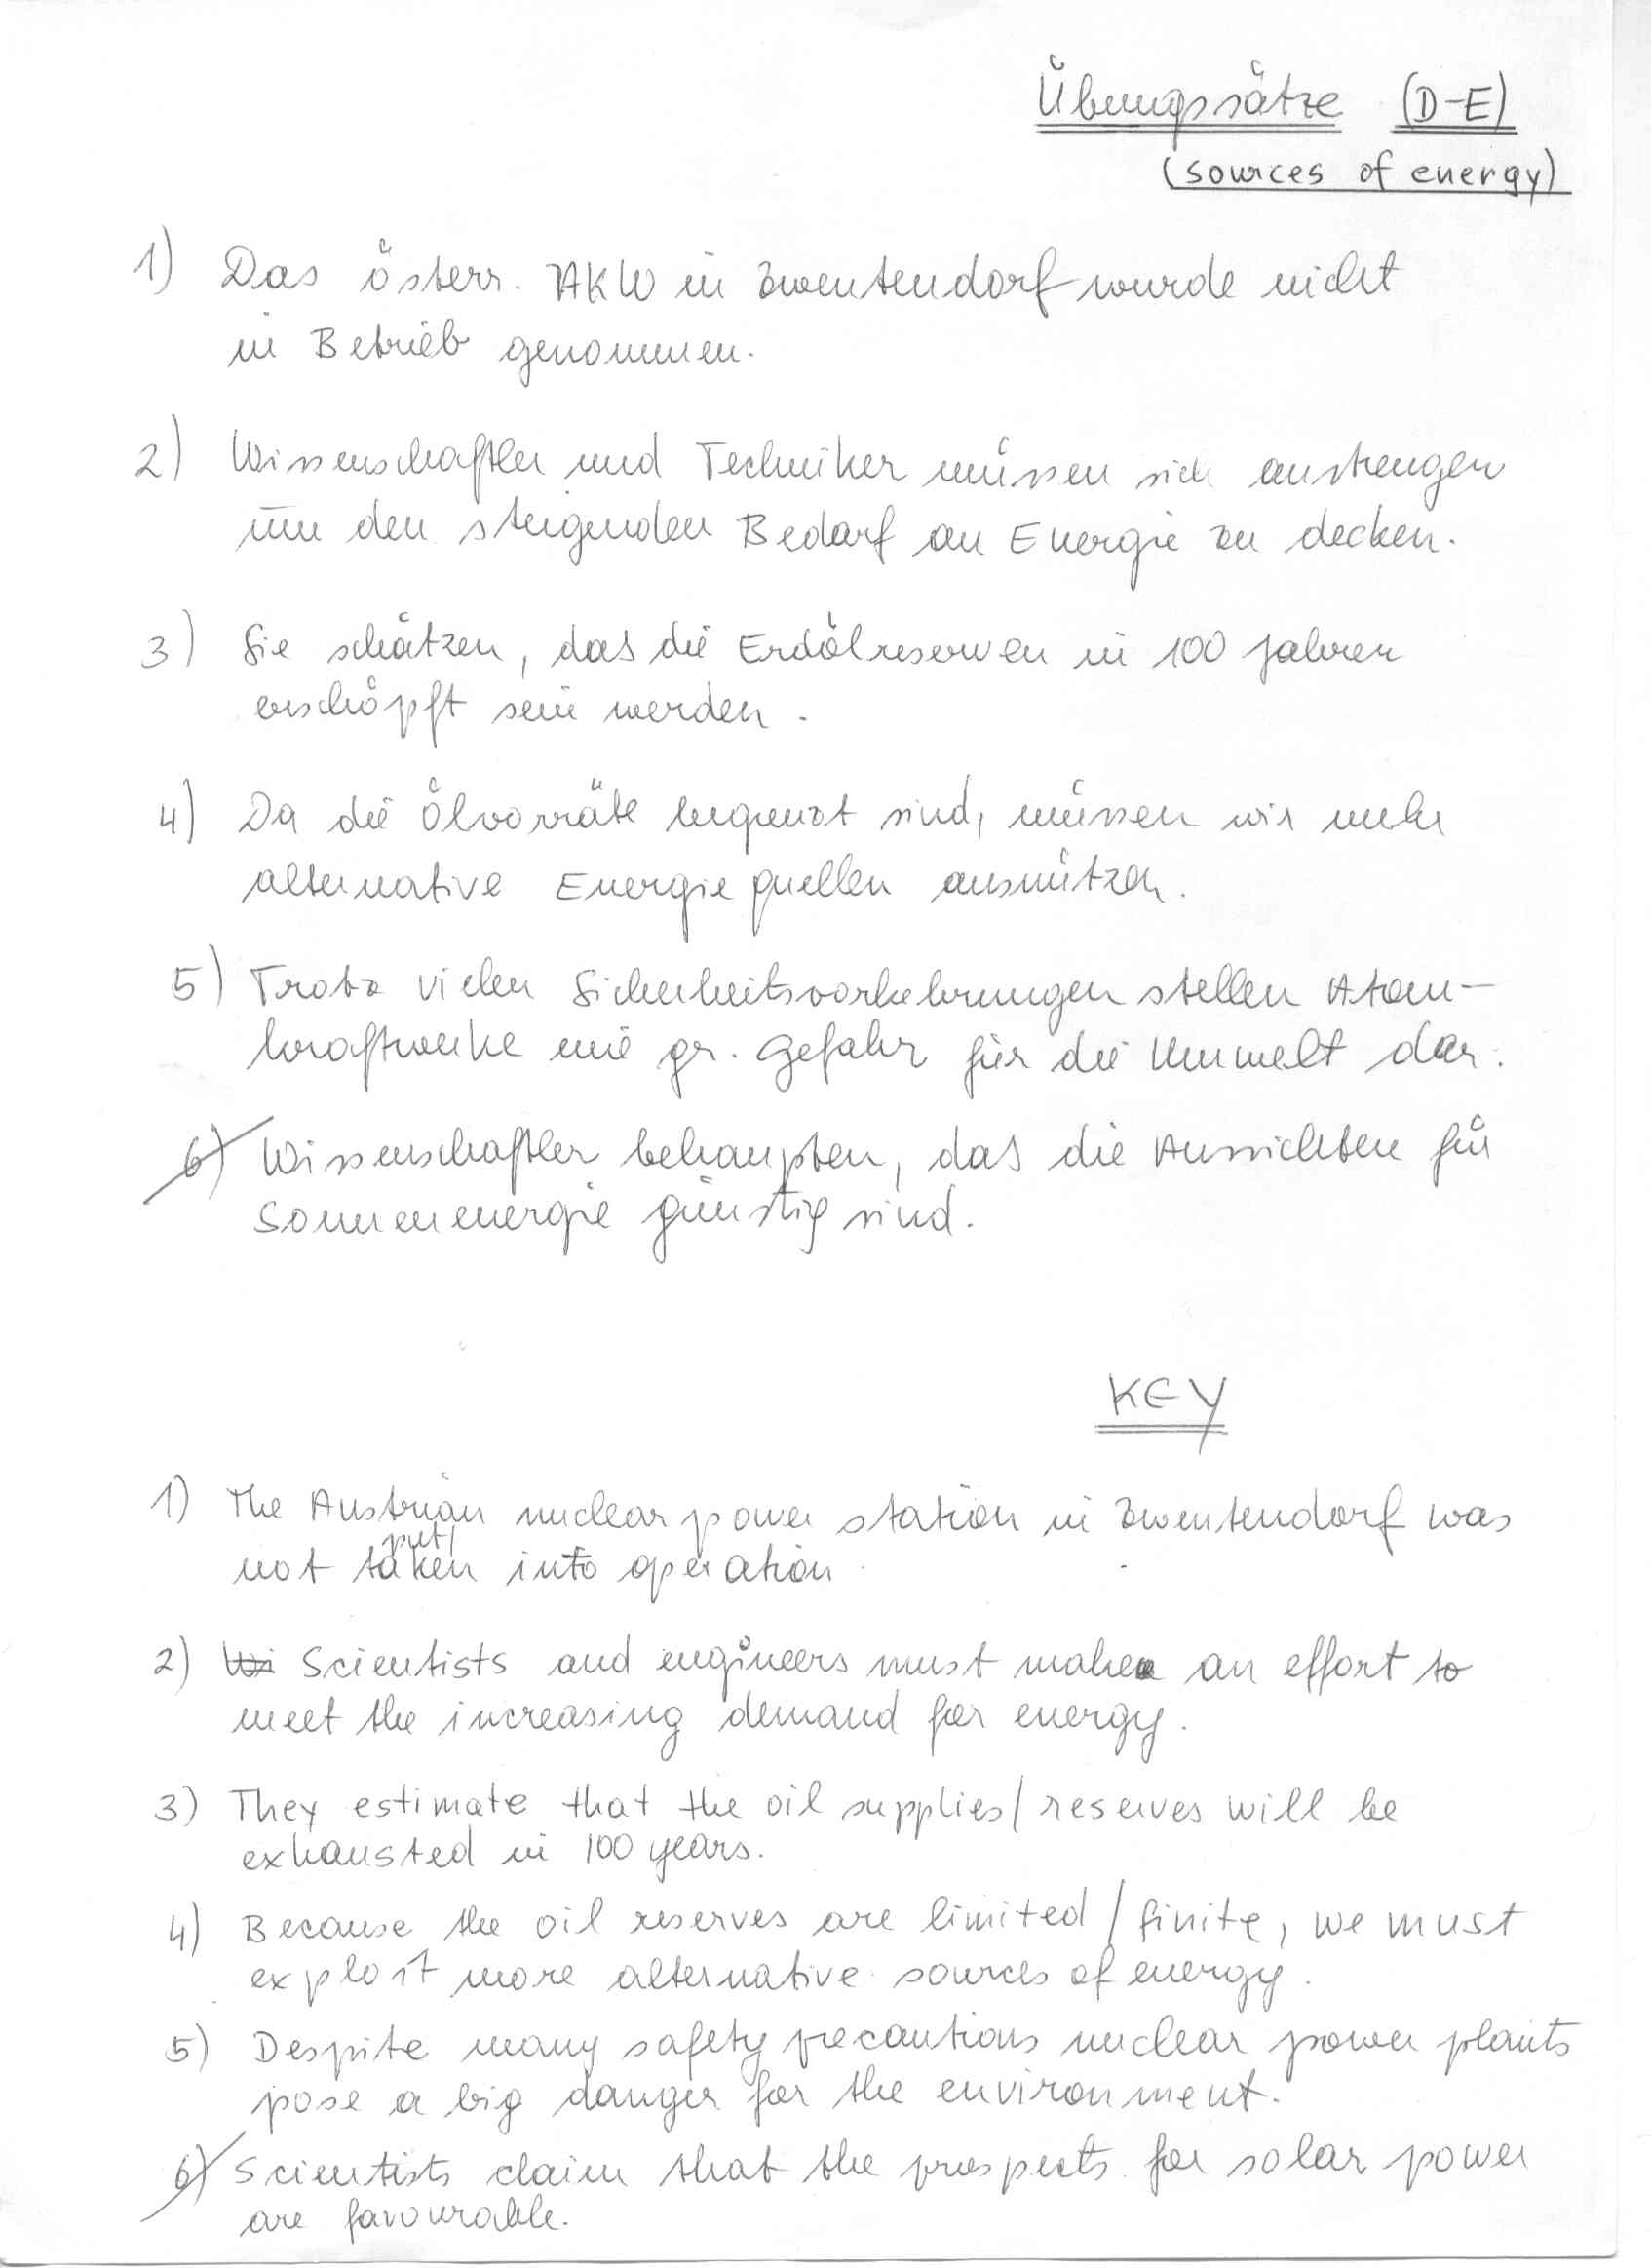 Übungssätze (D-E)
(sources of energy)
1) Das österr. AKW in Zwentendorf wurde nicht
in Betrieb genommen.
2) Wissenschaftler und Techniker müssen sich anstrengen
um den steigenden Bedarf an Energie zu decken.
3) Sie schätzen, das die Erdölreserven in 100 Jahren
erschöpft sein werden.
4) Da die Ölvorräte begrenzt sind, müssen wir mehr
alternative Energiequellen ausnützen.
5) Trotz vielen Sicherheitsvorkehrungen stellen Atom-
kraftwerke eine gr. Gefahr für die Umwelt dar.
6) Wissenschaftler behaupten, das die Aussichten für
Sonnenenergie günstig sind.
KEY
1) The Austrian nuclear power station in Zwentendorf was
put/
not taken into operation
2) Wi Scientists and engineers must make an effort to
meet the increasing demand for energy.
3) They estimate that the oil supplies/reserves will be
exhausted in 100 years.
4) Because the oil reserves are limited/finite, we must
exploit more alternative sources of energy.
5) Despite many safety precautions nuclear power plants
pose a big danger for the environment.
6) Scientists claim that the prospects for solar power
are favourable.